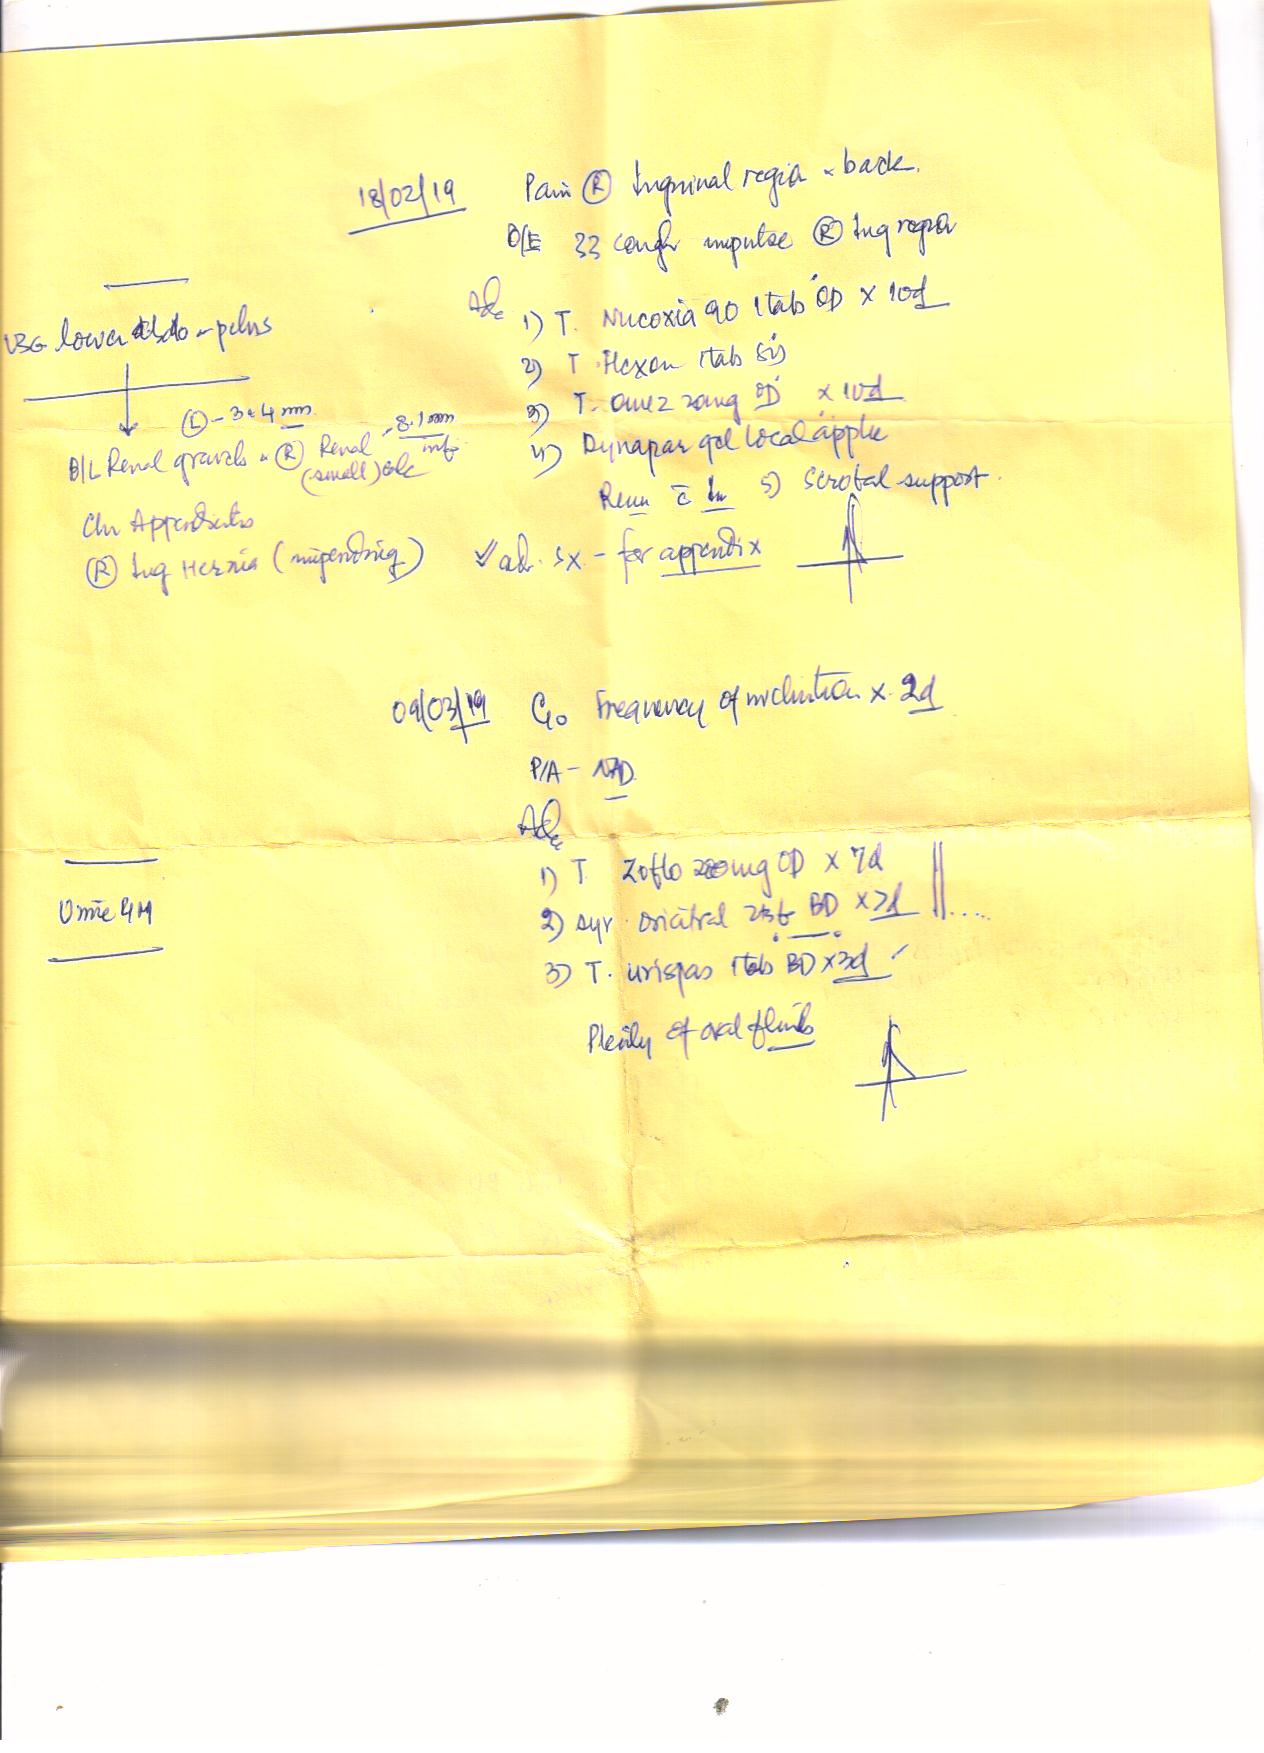 18/02/19 Pain (R) Inguinal region & back.
O/E cough impulse (R) Ing region
Adv
1) T. Nucoxia 90 1tab OD x 10d
2) T. Flexon 1tab SOS
3) T. Omez 20mg OD x 10d
4) Dynapar gel local applic
5) Scrotal support.
USG lower abdo & pelvis
(L) - 3 & 4 mm
B/L Renal gravels & (R) Renal (small) calc - 8.1mm
Chr Appendicitis
(R) Ing Hernia (impending)
adv. Sx. - for appendix
09/03/19 C/o Frequency of micturition x 2d
P/A - NAD
Adv
1) T. Zoflo 200mg OD x 7d
2) Syr. Oricitral 2tsf BD x 7d
3) T. Urispas 1tab BD x 3d
Plenty of oral fluids
Urine RM